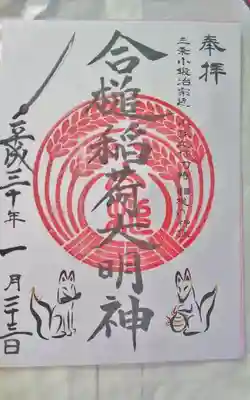 奉拝
三条小鍛冶宗近
合槌稲荷大明神
平成三十年一月二十三日